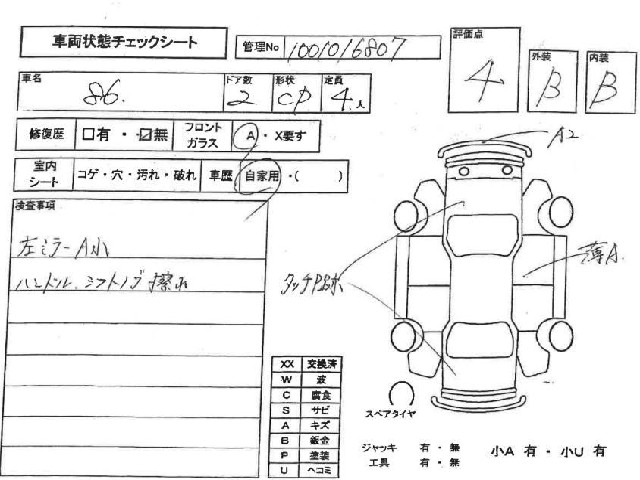 車両状態チェックシート
管理No 1001016807
評価点 4
外装 B
内装 B
車名 86.
ドア数 2
形状 CP
定員 4人
修復歴 □有・☑無
フロントガラス A・X要す
室内シート コゲ・穴・汚れ・破れ
車歴 自家用・( )
検査事項
左ミラーA小
ハンドル、シフトノブ擦れ
A2
薄A
タッチP跡
XX 交換済
W 波
C 腐食
S サビ
A キズ
B 鈑金
P 塗装
U ヘコミ
スペアタイヤ
ジャッキ 有・無
工具 有・無
小A 有・小U 有